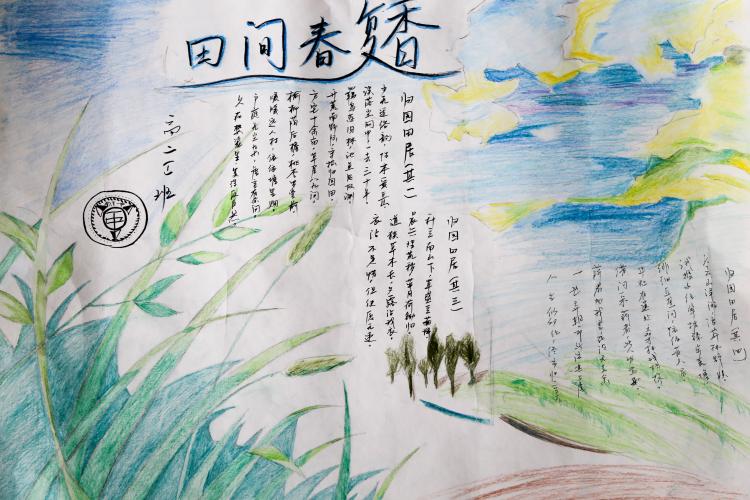 田间春复香
高二（1）班
归园田居（其一）
少无适俗韵，性本爱丘山。
误落尘网中，一去三十年。
羁鸟恋旧林，池鱼思故渊。
开荒南野际，守拙归园田。
方宅十余亩，草屋八九间。
榆柳荫后檐，桃李罗堂前。
暧暧远人村，依依墟里烟。
户庭无尘杂，虚室有余闲。
久在樊笼里，复得返自然。
归园田居（其三）
种豆南山下，草盛豆苗稀。
晨兴理荒秽，带月荷锄归。
道狭草木长，夕露沾我衣。
衣沾不足惜，但使愿无违。
归园田居（其四）
久去山泽游，浪莽林野娱。
试携子侄辈，披榛步荒墟。
徘徊丘垄间，依依昔人居。
井灶有遗处，桑竹残朽株。
借问采薪者，此人皆焉如。
薪者向我言，死没无复余。
一世异朝市，此语真不虚。
人生似幻化，终当归空无。